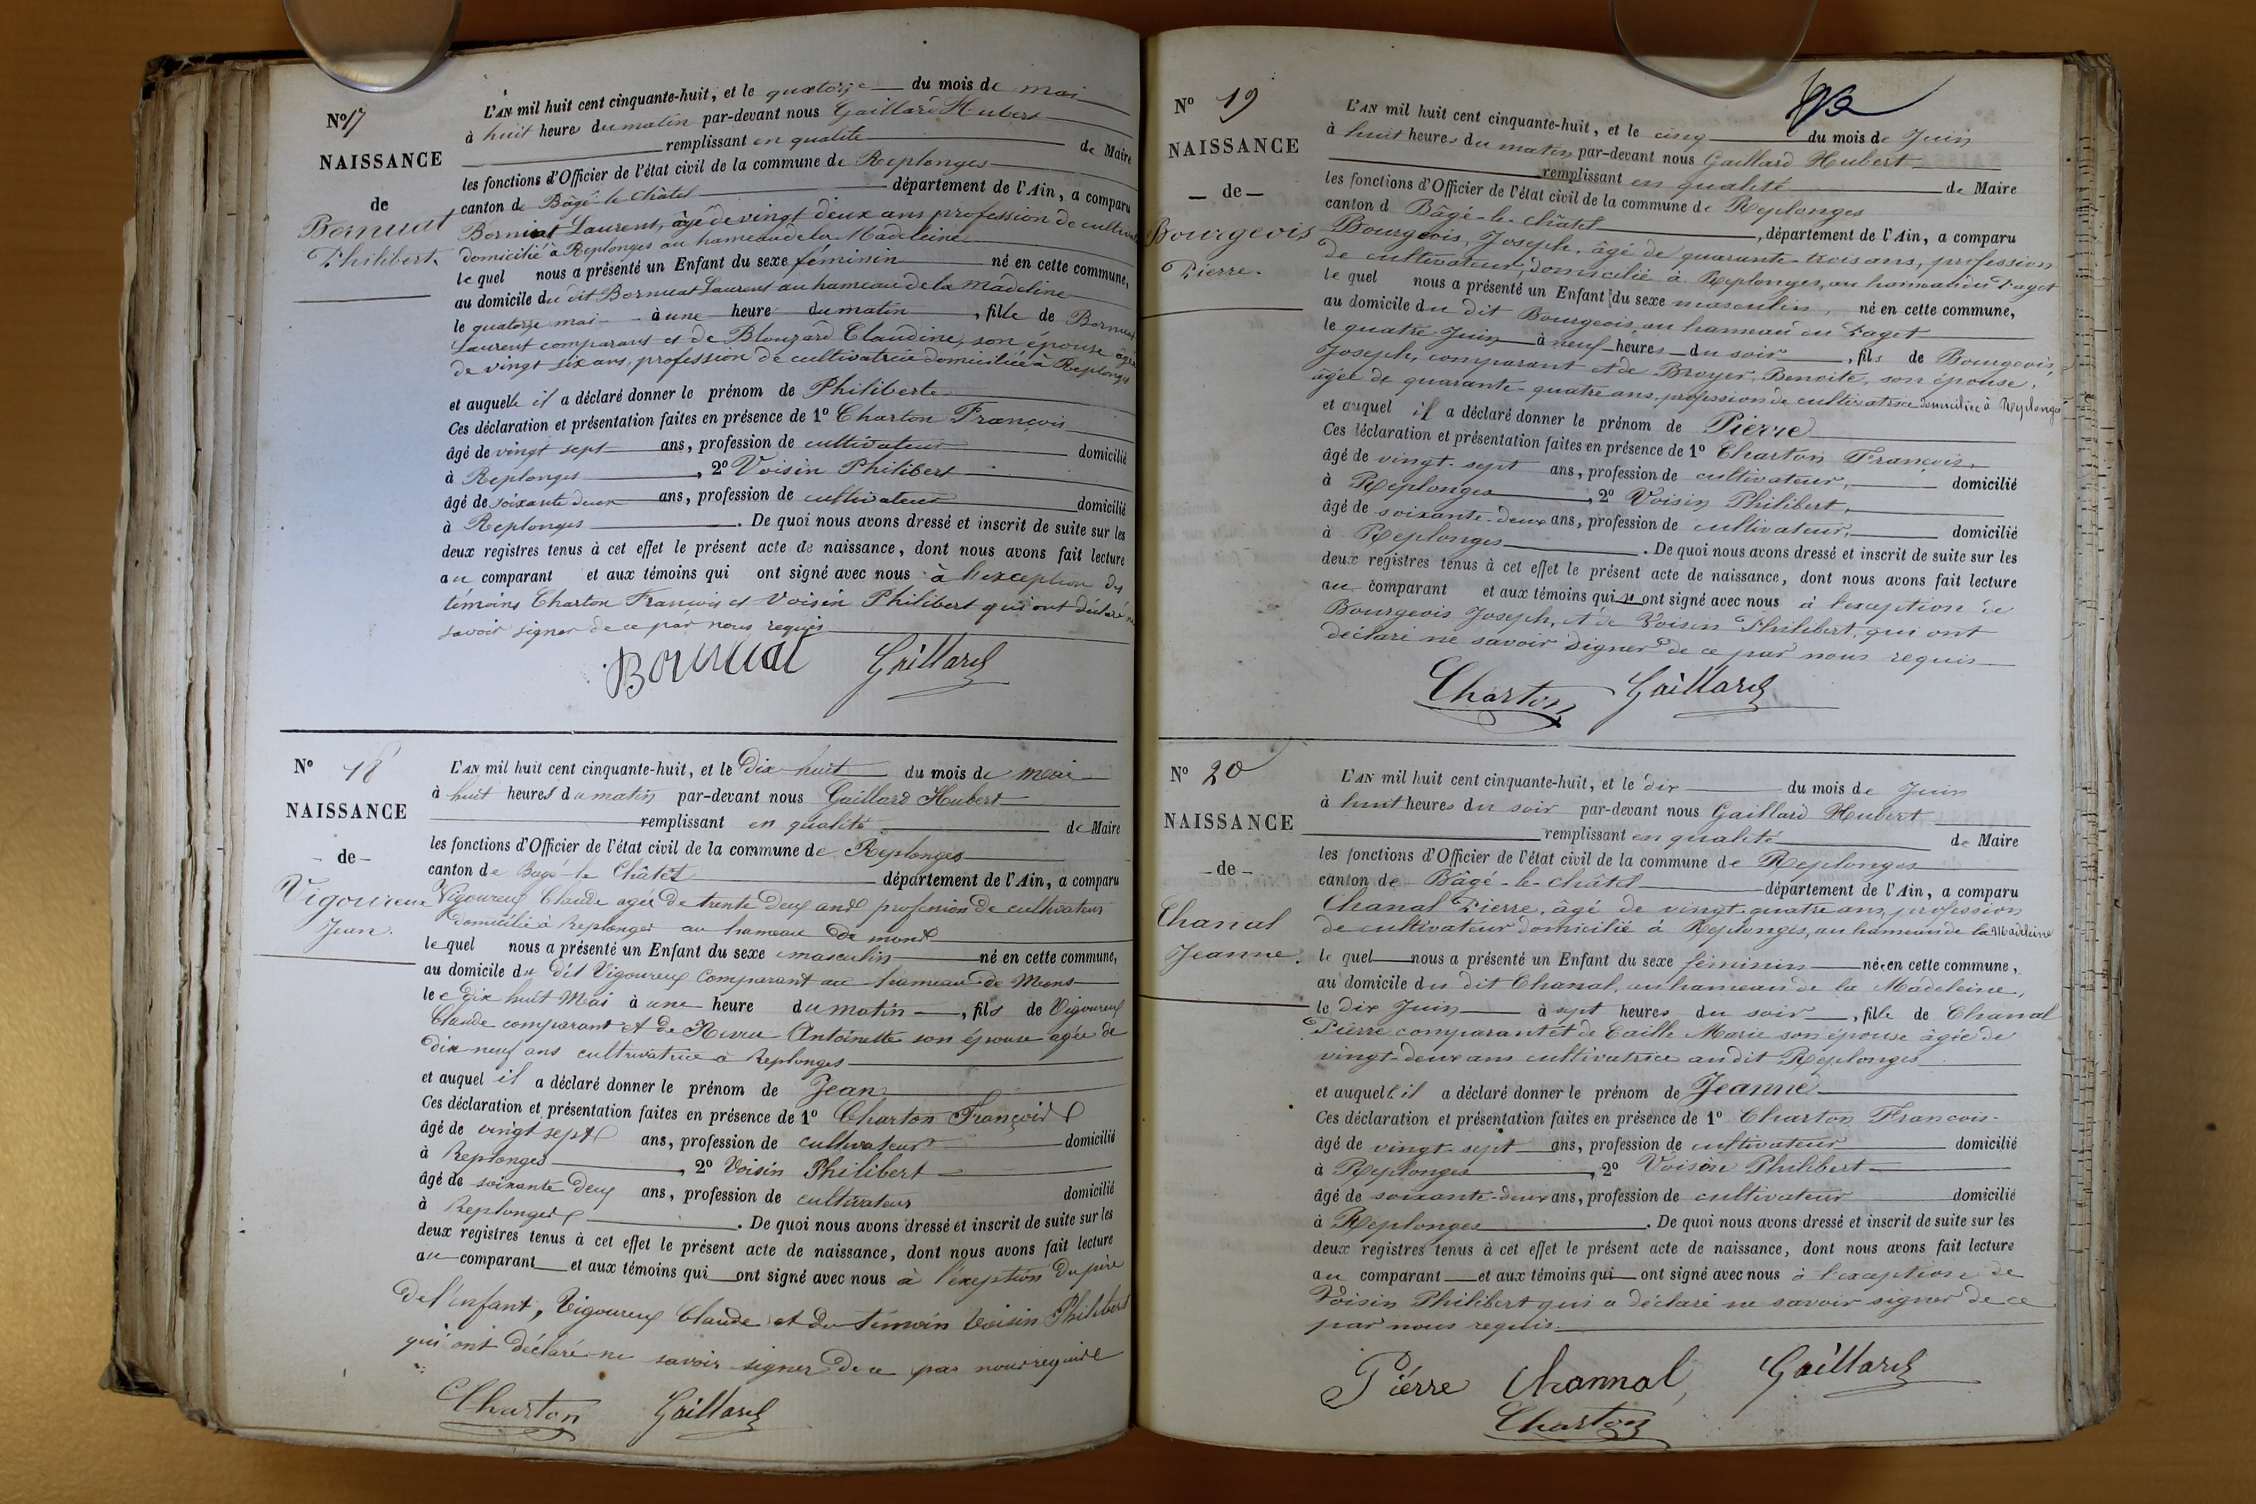 N° 17
NAISSANCE
de
Bornuat
Philiberte
L'AN mil huit cent cinquante-huit, et le quatorze du mois de mai
à huit heure du matin par-devant nous Gaillard Hubert
remplissant en qualité de Maire
les fonctions d'Officier de l'état civil de la commune de Replonges
canton de Bâgé-le-Châtel département de l'Ain, a comparu
Bornuat Laurent, âgé de vingt deux ans profession de cultivateur
domicilié à Replonges au hameau de la Madeleine
le quel nous a présenté un Enfant du sexe féminin né en cette commune,
au domicile du dit Bornuat Laurent au hameau de la Madeleine
le quatorze mai à une heure du matin, fille de Bornuat
Laurent comparant et de Blouzard Claudine, son épouse âgée
de vingt six ans, profession de cultivatrice domiciliée à Replonges
et auquelle il a déclaré donner le prénom de Philiberte
Ces déclaration et présentation faites en présence de 1° Charton François
âgé de vingt sept ans, profession de cultivateur domicilié
à Replonges, 2° Voisin Philibert
âgé de soixante deux ans, profession de cultivateur domicilié
à Replonges. De quoi nous avons dressé et inscrit de suite sur les
deux registres tenus à cet effet le présent acte de naissance, dont nous avons fait lecture
au comparant et aux témoins qui ont signé avec nous à l'exception des
témoins Charton François et Voisin Philibert qui ont déclaré ne
savoir signer de ce par nous requis
Bornuat Gaillard
N° 18
NAISSANCE
- de -
Vigoureux
Jean.
L'AN mil huit cent cinquante-huit, et le Dix huit du mois de mai
à huit heures du matin par-devant nous Gaillard Hubert
remplissant en qualité de Maire
les fonctions d'Officier de l'état civil de la commune de Replonges
canton de Bagé-le Châtel département de l'Ain, a comparu
Vigoureux Claude agé de trente Deux ans profession de cultivateur
domicilié à Replonges au hameau de
le quel nous a présenté un Enfant du sexe masculin né en cette commune,
au domicile du dit Vigoureux comparant au hameau de
le dix huit Mai à une heure du matin, fils de Vigoureux
Claude comparant et de Antoinette son épouse agée de
dix neuf ans cultivatrice à Replonges
et auquel il a déclaré donner le prénom de Jean
Ces déclaration et présentation faites en présence de 1° Charton François
âgé de vingt sept ans, profession de cultivateur domicilié
à Replonges, 2° Voisin Philibert
âgé de soixante deux ans, profession de cultivateur domicilié
à Replonges. De quoi nous avons dressé et inscrit de suite sur les
deux registres tenus à cet effet le présent acte de naissance, dont nous avons fait lecture
au comparant et aux témoins qui ont signé avec nous à l'exeption du père
de l'enfant, Vigoureux Claude et du témoin Voisin Philibert
qui ont déclaré ne savoir signer de ce par nous requis
Charton Gaillard
N° 19
NAISSANCE
- de -
Bourgeois
Pierre.
L'AN mil huit cent cinquante-huit, et le cinq du mois de Juin
à huit heures du matin par-devant nous Gaillard Hubert
remplissant en qualité de Maire
les fonctions d'Officier de l'état civil de la commune de Replonges
canton d Bâgé-le-Châtel, département de l'Ain, a comparu
Bourgeois, Joseph, âgé de quarante-trois ans, profession
de cultivateur, domicilié à Replonges, au hameau du Paget
le quel nous a présenté un Enfant du sexe masculin, né en cette commune,
au domicile du dit Bourgeois, au hameau du Paget
le quatre Juin à neuf heures du soir, fils de Bourgeois,
Joseph, comparant et de Broyer, Benoite, son épouse,
âgée de quarante-quatre ans, profession de cultivatrice domiciliée à Replonges
et auquel il a déclaré donner le prénom de Pierre
Ces déclaration et présentation faites en présence de 1° Charton François,
âgé de vingt-sept ans, profession de cultivateur, domicilié
à Replonges, 2° Voisin Philibert,
âgé de soixante-deux ans, profession de cultivateur, domicilié
à Replonges. De quoi nous avons dressé et inscrit de suite sur les
deux registres tenus à cet effet le présent acte de naissance, dont nous avons fait lecture
au comparant et aux témoins qui ont signé avec nous à l'exception de
Bourgeois Joseph, et de Voisin Philibert, qui ont
déclaré ne savoir signer de ce par nous requis
Charton Gaillard
N° 20
NAISSANCE
- de -
Chanal
Jeanne.
L'AN mil huit cent cinquante-huit, et le dix du mois de Juin
à huit heures du soir par-devant nous Gaillard Hubert
remplissant en qualité de Maire
les fonctions d'Officier de l'état civil de la commune de Replonges
canton de Bâgé-le-châtel département de l'Ain, a comparu
Chanal Pierre, âgé de vingt-quatre ans, profession
de cultivateur domicilié à Replonges, au hameau de la Madeleine
le quel nous a présenté un Enfant du sexe féminin née en cette commune,
au domicile du dit Chanal, au hameau de la Madeleine,
le dix Juin à sept heures du soir, fille de Chanal
Pierre comparant et de Caille Marie son épouse âgée de
vingt-deux ans cultivatrice au dit Replonges
et auquelle il a déclaré donner le prénom de Jeanne
Ces déclaration et présentation faites en présence de 1° Charton Francois
âgé de vingt-sept ans, profession de cultivateur domicilié
à Replonges, 2° Voisin Philibert
âgé de soixante-deux ans, profession de cultivateur domicilié
à Replonges. De quoi nous avons dressé et inscrit de suite sur les
deux registres tenus à cet effet le présent acte de naissance, dont nous avons fait lecture
au comparant et aux témoins qui ont signé avec nous à l'exception de
Voisin Philibert qui a déclaré ne savoir signer de ce
par nous requis.
Pierre Channal, Gaillard
Charton